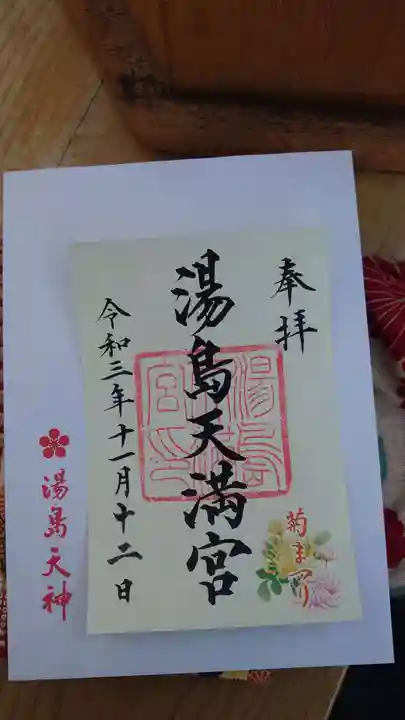 奉拝
湯島天満宮
令和三年十一月十二日
菊まつり
湯島天神